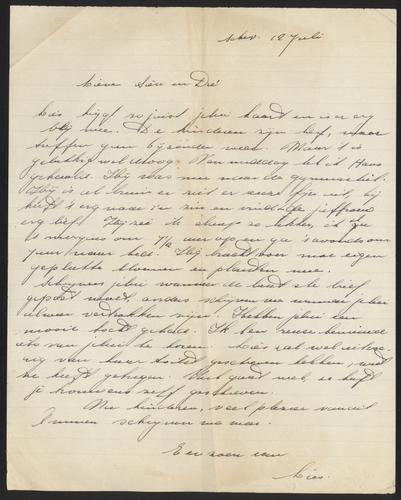 12 Juli
Lieve Sien en Dré
Lies krijgt so juist jullie kaart en is er erg
blij mee. De kinderen zijn lief, maar
treffen geen bijzonder weer. Maar 't is
gelukkig wel droog. Van middag heb ik Hans
gehaald. Hij was mee naar de gymnastiek.
Hij is al bruin en ziet er reuze fijn uit, hij
heeft 't erg naar z'n zin en vindt de juffrouw
erg lief. Hij zei ik slaap zo lekker, ik ga
's morgens om 7 1/2 uur op en ga 's avonds om
7 uur naar bed. Hij bracht voor moe eigen
geplukte bloemen en planten mee.
Schrijven jullie wanneer de laatste brief
gepost moet, anders schrijven we en jullie
al weer vertrokken zijn. Hebben jullie een
mooie tocht gehad. Ik ben reuze benieuwd
iets van jullie te horen. Lies zal wel
erg van haar geschreven hebben, wat
ze heeft gekregen. 't gaat wel, ze heeft
je trouwens zelf geschreven.
Nu kinderen, veel plezier vanuit
Emmen schrijven we weer.
Een zoen van
Lies.